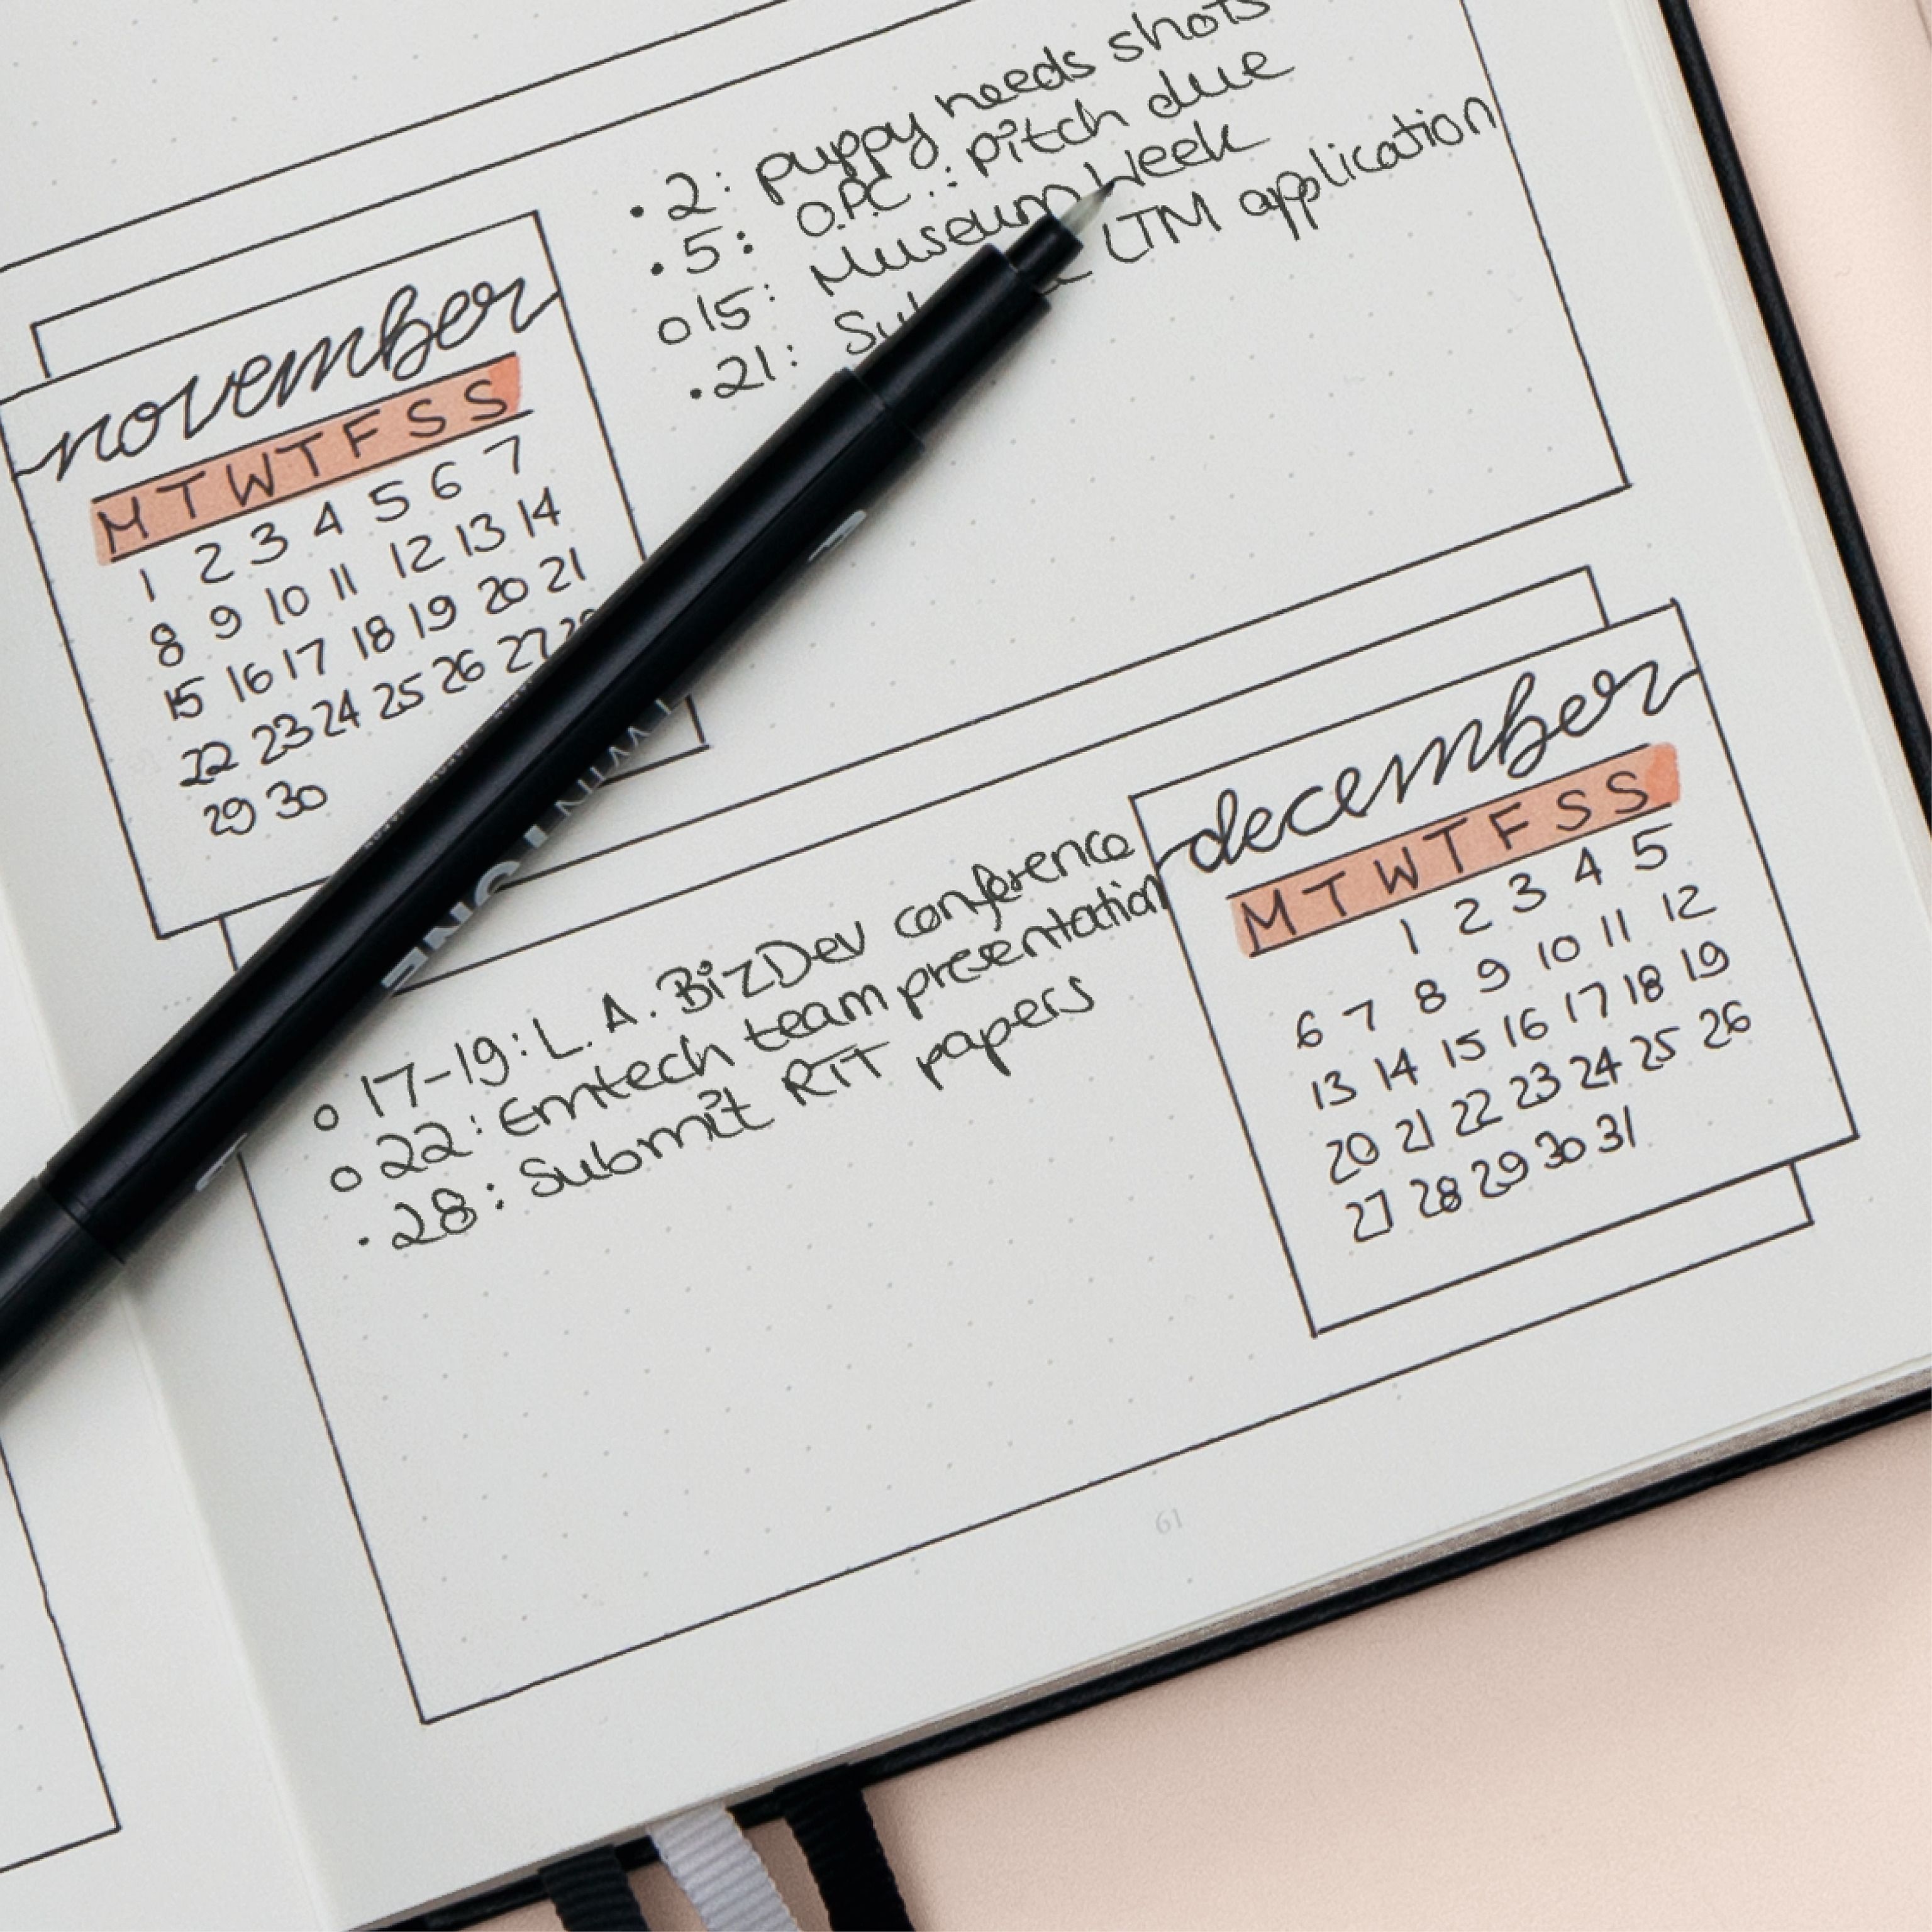 • 2: puppy needs shots
• 5: O.P.C.: pitch due
o 15: Museum Week
• 21: LTM application
november
M T W T F S S
1 2 3 4 5 6 7
8 9 10 11 12 13 14
15 16 17 18 19 20 21
22 23 24 25 26 27 28
29 30
TWIN TONE
december
M T W T F S S
1 2 3 4 5
6 7 8 9 10 11 12
13 14 15 16 17 18 19
20 21 22 23 24 25 26
27 28 29 30 31
o 17-19: L.A. BizDev conference
o 22: Emtech team presentation
• 28: Submit RTT papers
61